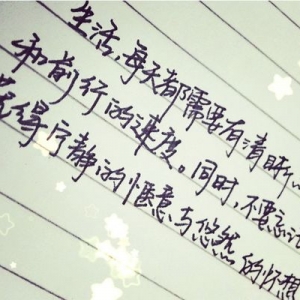 生活,每天都需要有清晰
和前行的速度。同时,不要忘记
边缘宁静的惬意与悠然的怀想